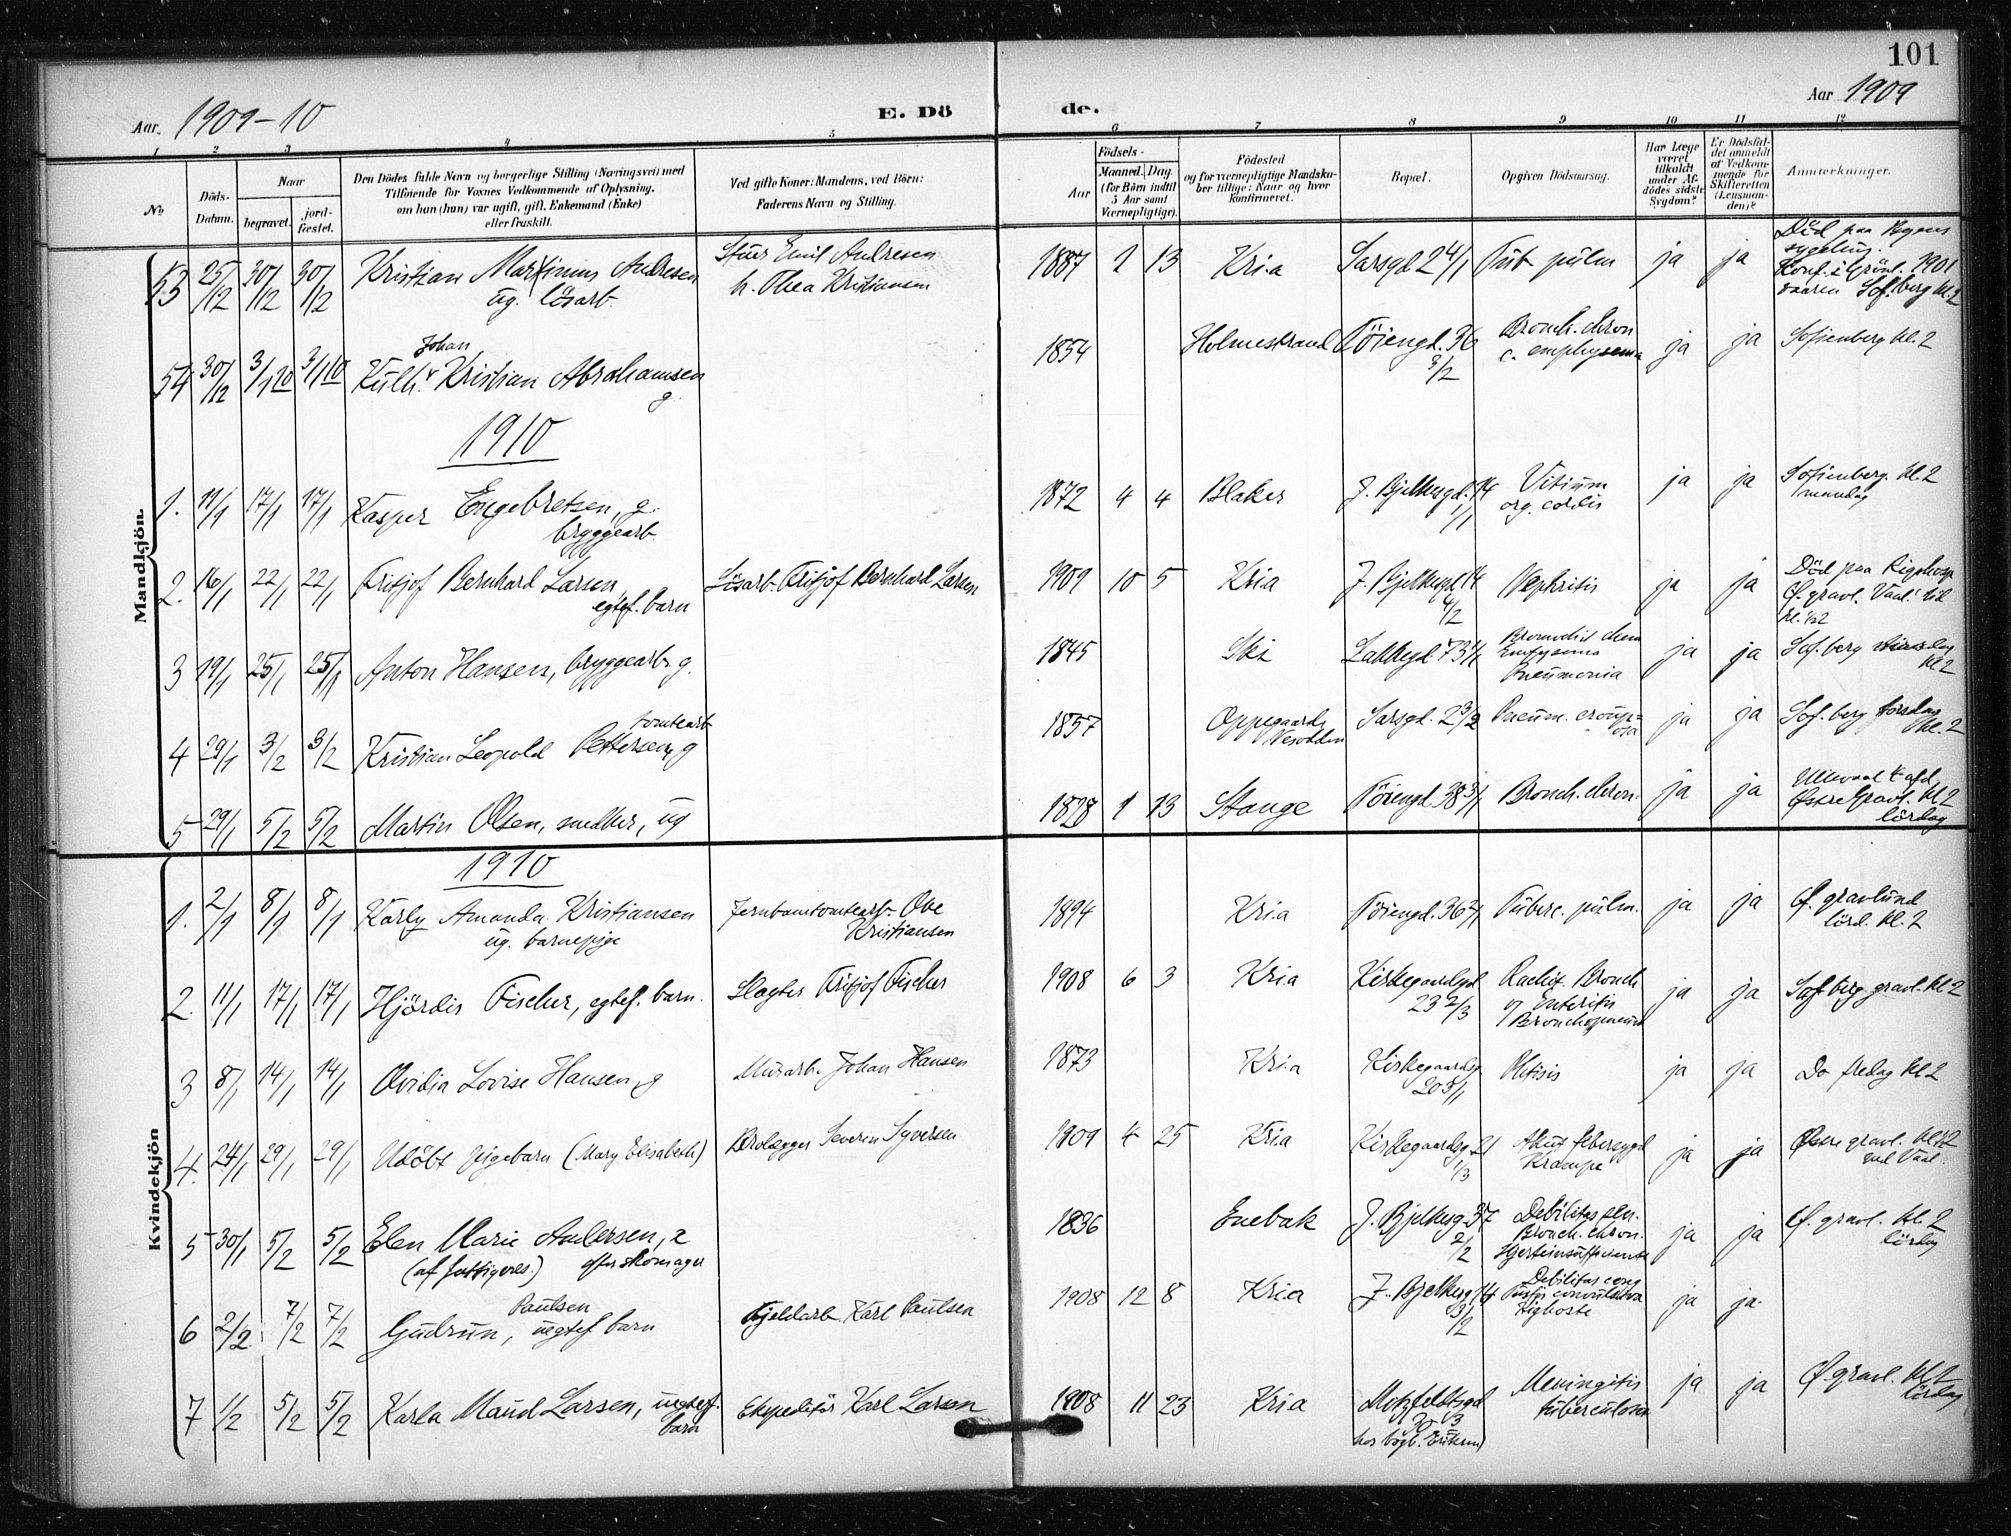 101
Aar. 1909-10 E. Dö de. Aar 1909
1 2 3 4 5 6 7 8 9 10 11 12
No.
Döds-Datum.
Naar
begravet.
jord-fæstet.
Den Dödes fulde Navn og borgerlige Stilling (Næringsvei) med
Tilföiende for Voxnes Vedkommende af Oplysning,
om han (hun) var ugift, gift, Enkemand (Enke)
eller fraskilt.
Ved gifte Koner: Mandens, ved Börn:
Faderens Navn og Stilling.
Födsels-
Aar
Maaned. Dag.
(for Börn indtil
5 Aar samt
Værnepligtige).
Födested
og for værnepligtige Mandska-
ber tillige: Naar og hvor
konfirmeret.
Bopæl.
Opgiven Dödsaarsag.
Har Læge
været
tilkaldt
under Af-
dödes sidste
Sygdom?
Er Dödsfal-
det anmeldt
af Vedkom-
mende for
Skifteretten
(Lensman-
den)?
Anmærkninger.
Mandkjön.
53 25/12 30/12 30/12 Kristian Martinius Andresen ug. lösarb. Stuer Emil Andresen h. Thea Kristiansen 1887 1 13 Kria Sarsgd 24/1 Tub pulm ja ja Död paa Byens sygehus. Konf. i Grönl. 1901 vaaren Sof.berg kl. 2
54 30/12 3/1 10 3/1 10 Kulh. Johan Kristian Abrahamsen g. 1854 Holmestrand Töiengd. 36 3/2 Bronch. chron c. emphysema ja ja Sofienberg kl. 2
1910
1. 11/1 17/1 17/1 Kasper Engebretsen, g. bryggearb. 1872 4 4 Blaker J. Bjelkesgd. 14 1/1 Vitium org. cordis ja ja Sofienberg. kl. 2 mandag
2. 16/1 22/1 22/1 Fritjof Bernhard Larsen, egtef. barn Lösarb. Fritjof Bernhard Larsen 1909 10 5 Kria J. Bjelkesgd 14 4/2 Nephritis ja ja Död paa Rigshosp Ö. gravl.
3 19/1 25/1 25/1 Anton Hansen, bryggearb. g. 1845 Ski Lakkegd. 73 Emfysema Pneumonia ja ja Sof.berg kl. 2
4 29/1 3/2 3/2 Kristian Leopold Pettersen, g tomtearb 1857 Oppegaard, Nesodden Sarsgd. 2 3/2 Pneum. croup-osa ja ja Sof.berg torsdag kl. 2
5 29/1 5/2 5/2 Martin Olsen, snedker, ug 1 13 Stange Töiengd. 38 3/1 Bronch. chron. ja ja Östre Gravl. kl. 2 lördag
Kvindekjön
1910
1. 2/1 8/1 8/1 Karly Amanda Kristiansen ug. barnepige Jernbanetomtearb. Ove Kristiansen 1894 Kria Töiengd. 36 Tuberc. pulm. ja ja Ö. gravlund lörd. kl. 2
2. 11/1 17/1 17/1 Hjördis Fischer, egtef. barn. Slagter Fritjof Fischer 1908 6 3 Kria Kirkegaardsgd 23 2/3 Rachit. Bronch og Enteritis Bronchopneum ja ja Sof.berg gravl. kl 2
3 8/1 14/1 14/1 Ovidia Lovise Hansen, g Murarb. Johan Hansen 1873 Kria Kirkegaardsg 20 5/1 Phtisis ja ja Do fredag kl 2
4. 24/1 29/1 29/1 Udöbt pigebarn (Mary Elisabeth) Brolægger Severin Syversen 1909 4 25 Kria Kirkegaardsg 21 1/3 Akut febersygd Krampe ja ja Östre gravl. kl 12
5 30/1 5/2 5/2 Elen Marie Andersen, e (af fattigvæs.) efter skomager 1836 Enebak J. Bjelkesg 37 2/2 Debilitas sen. Bronch. chron. Hjerteinsufficiense ja ja Ö. gravl. kl. 2 lördag
6 2/2 7/2 7/2 Gudrun Paulsen, uegtef barn Fjeldarb. Karl Paulsen 1908 12 8 Kria J. Bjelkesg 14 3/2 Debilitas cong Tussis convulsiva Kighoste ja ja.
7 1/2 5/2 5/2 Karla Maud Larsen, uegtef. barn Ekspeditör Karl Larsen 1908 11 23 Kria Motzfeldtsgd 30 3/II hos bogb. Eriksen) Meningitis tuberculosa ja ja Ö. gravl. lördag